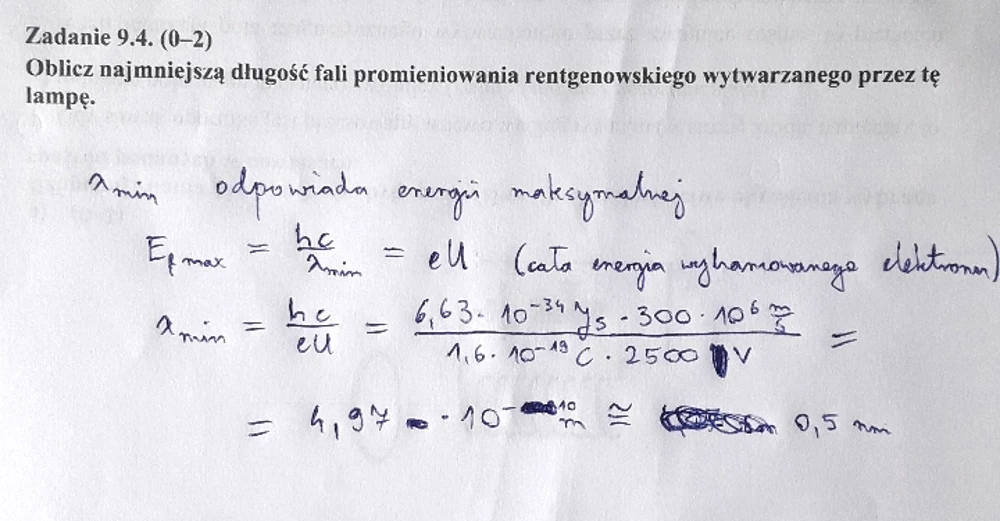 Zadanie 9.4. (0–2)
Oblicz najmniejszą długość fali promieniowania rentgenowskiego wytwarzanego przez tę
lampę.
λmin odpowiada energii maksymalnej
Ef max = hc/λmin = eU (cała energia wyhamowanego elektronu)
λmin = hc/eU = 6,63 · 10⁻³⁴ Js · 300 · 10⁶ m/s / 1,6 · 10⁻¹⁹ C · 2500 V =
= 4,97 · 10⁻¹⁰ m ≅ 0,5 nm